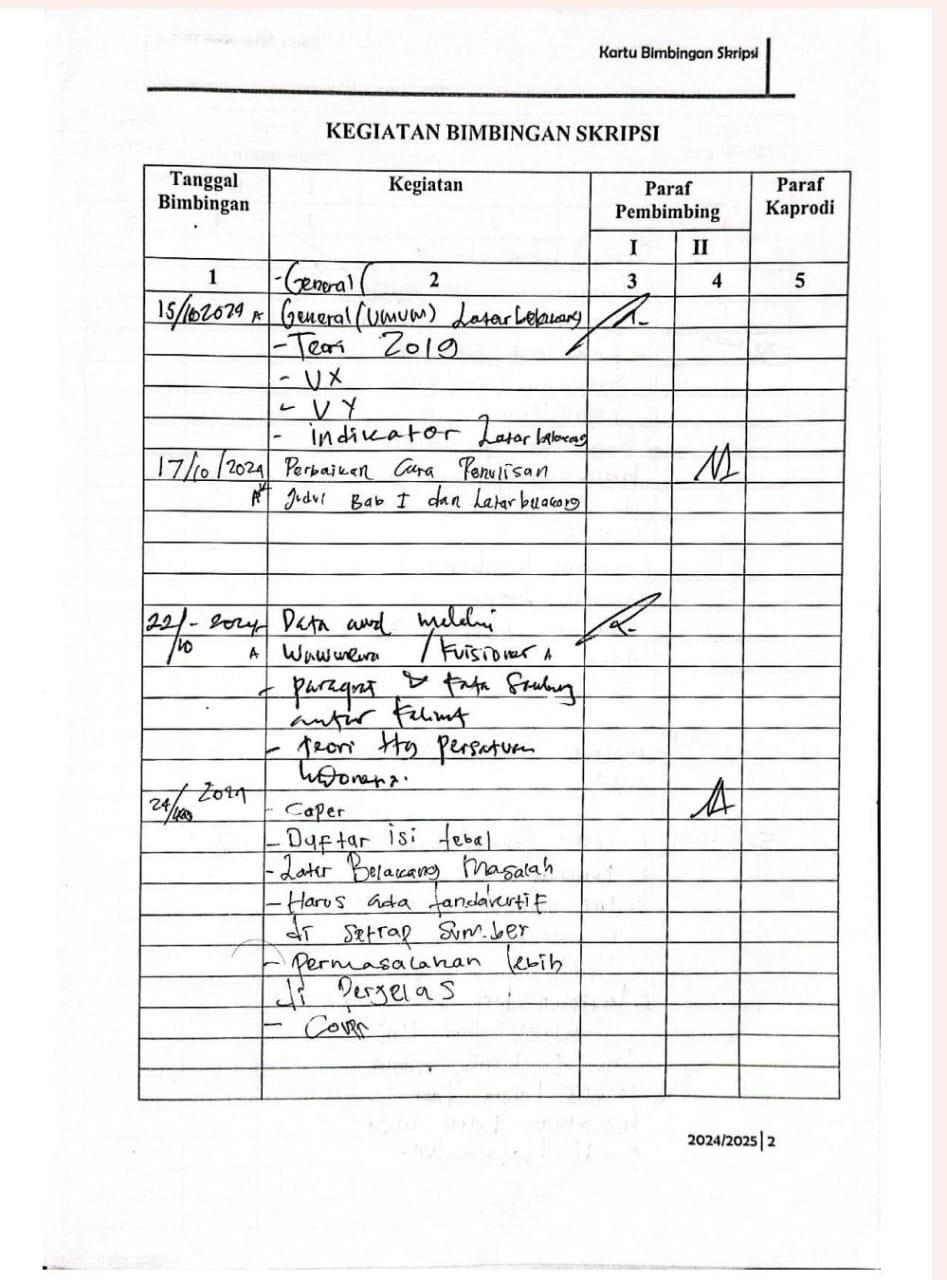 Kartu Bimbingan Skripsi
KEGIATAN BIMBINGAN SKRIPSI
Tanggal Bimbingan
Kegiatan
Paraf Pembimbing
Paraf Kaprodi
I II
1 2 3 4 5
- General (
15/10 2024 General (UMUM) Latar belakang
- Teori 2019
- VX
- VY
- indikator Latar belakang
17/10/2024 Perbaikan Cara Penulisan
Judul Bab I dan Latar belakang
22/10 - 2024 Data awal melalui
/ Kuisioner
- paragraf & kata
antar
- teori ttg Persatuan
24/ 2024
- Caper
- Daftar isi tebal
- Later Belakang Masalah
- Harus ada
di Setiap Sumber
- Permasalahan lebih
di Perjelas
- Cover
2024/2025 | 2